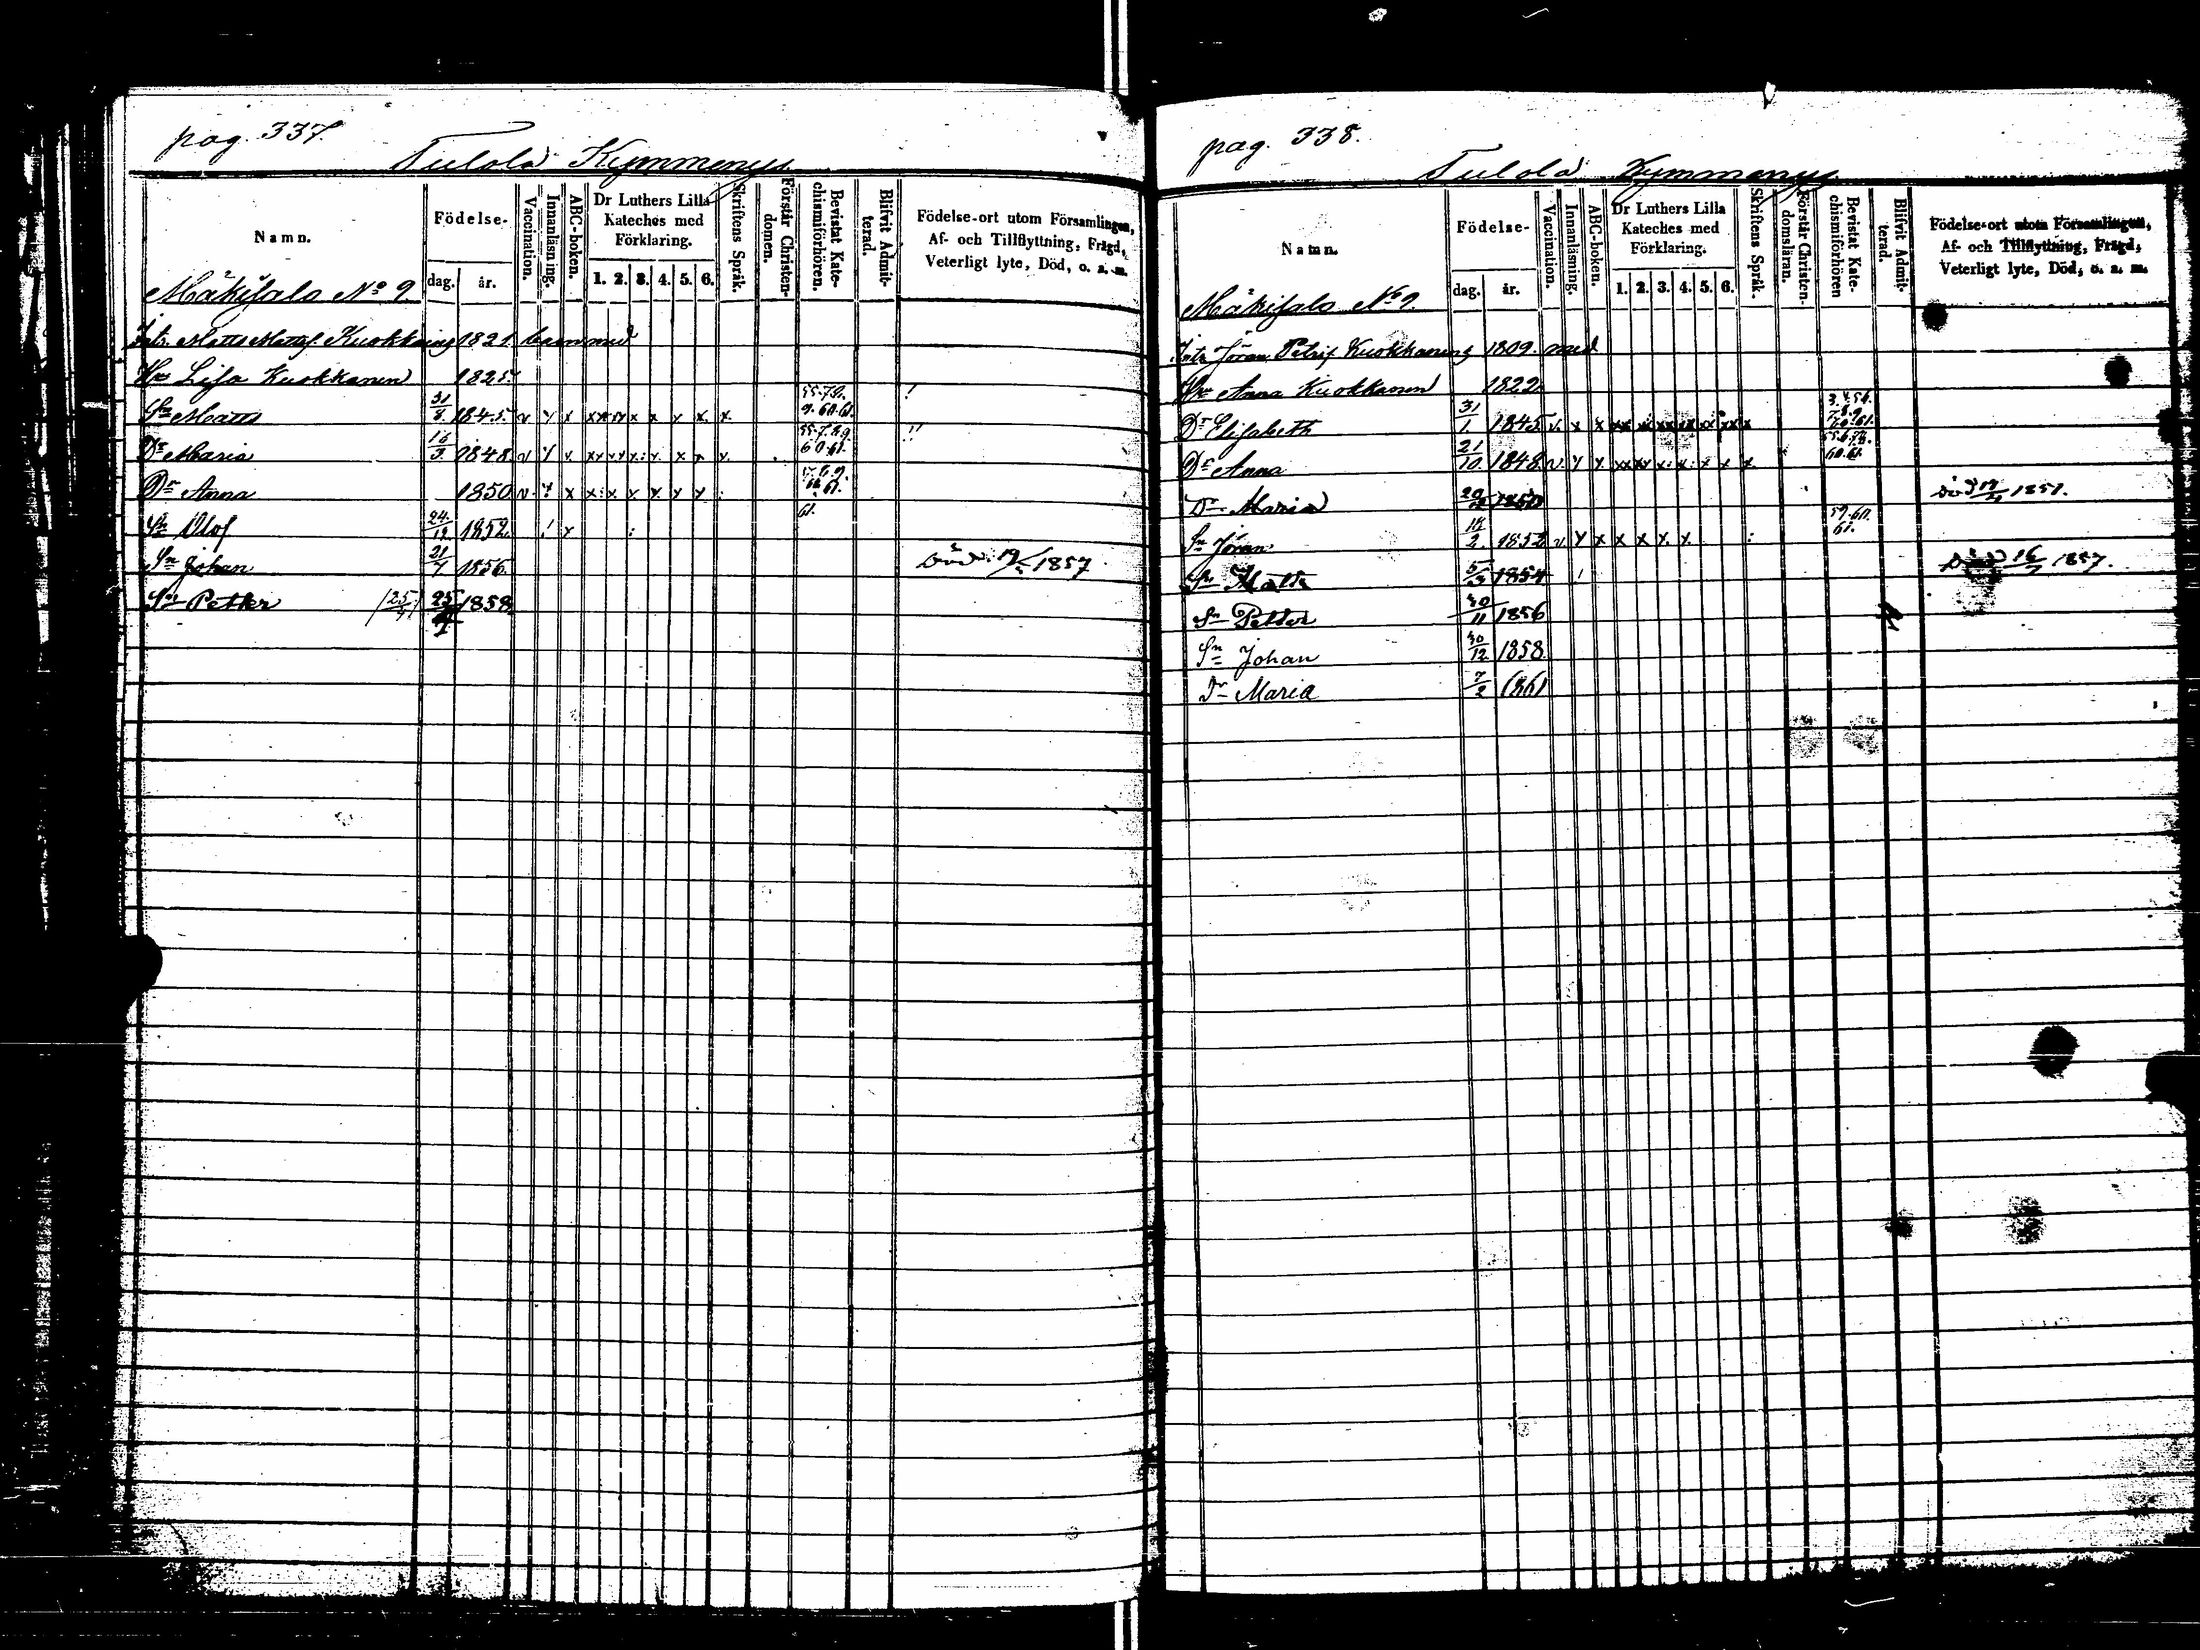 pag. 337.
Tulola Kymmenys
Namn.
Födelse-
dag.
år.
Vaccination.
Innanläsning.
ABC-boken.
Dr Luthers Lilla
Kateches med
Förklaring.
1. 2. 3. 4. 5. 6.
Skriftens Språk.
Förstår Christen-
domen.
Bevistat Kate-
chismiförhören.
Blifvit Admit-
terad.
Födelse-ort utom Församlingen,
Af- och Tillflyttning, Frägd,
Veterligt lyte, Död, o. a. m.
Mäkisalo No 9.
Matts Matts. Kuokkaing 1821. barn med
Hu Lisa Kuokkanen 1825.
Sn Matts 31/8. 1845. v Y x
Dr Maria 16/3. 1848. v Y x
Dr Anna 1850 v. Y x
Sn Olof 24./12 1852.
Sn Johan 21/7 1856. Död. 19/ 1857.
Sn Petter (25/4) 25/4 1858
pag. 338.
Tulola Kymmenys
Namn.
Födelse-
dag.
år.
Vaccination.
Innanläsning.
ABC-boken.
Dr Luthers Lilla
Kateches med
Förklaring.
1. 2. 3. 4. 5. 6.
Skriftens Språk.
Förstår Christen-
domsläran.
Bevistat Kate-
chismiförhören
Blifvit Admit-
terad.
Födelse-ort utom Församlingen,
Af- och Tillflyttning, Frägd,
Veterligt lyte, Död, o. a. m.
Mäkisalo No 9.
Jöran Petris. Kuokkaning 1809. med
Hu Anna Kuokkanen 1822
Dr Elisabeth 31/1. 1845. v. x x
Dr Anna 21/10. 1848. v. Y Y
Dr Maria 20/12 1850 död 1851.
Sn Jöran 18/2. 1852 v Y x x x x. x.
Sn Matts 5/3 1854 Död 16/7 1857.
Sn Petter 30/11 1856
Sn Johan 30/12 1858
Dr Maria 7/2 1861